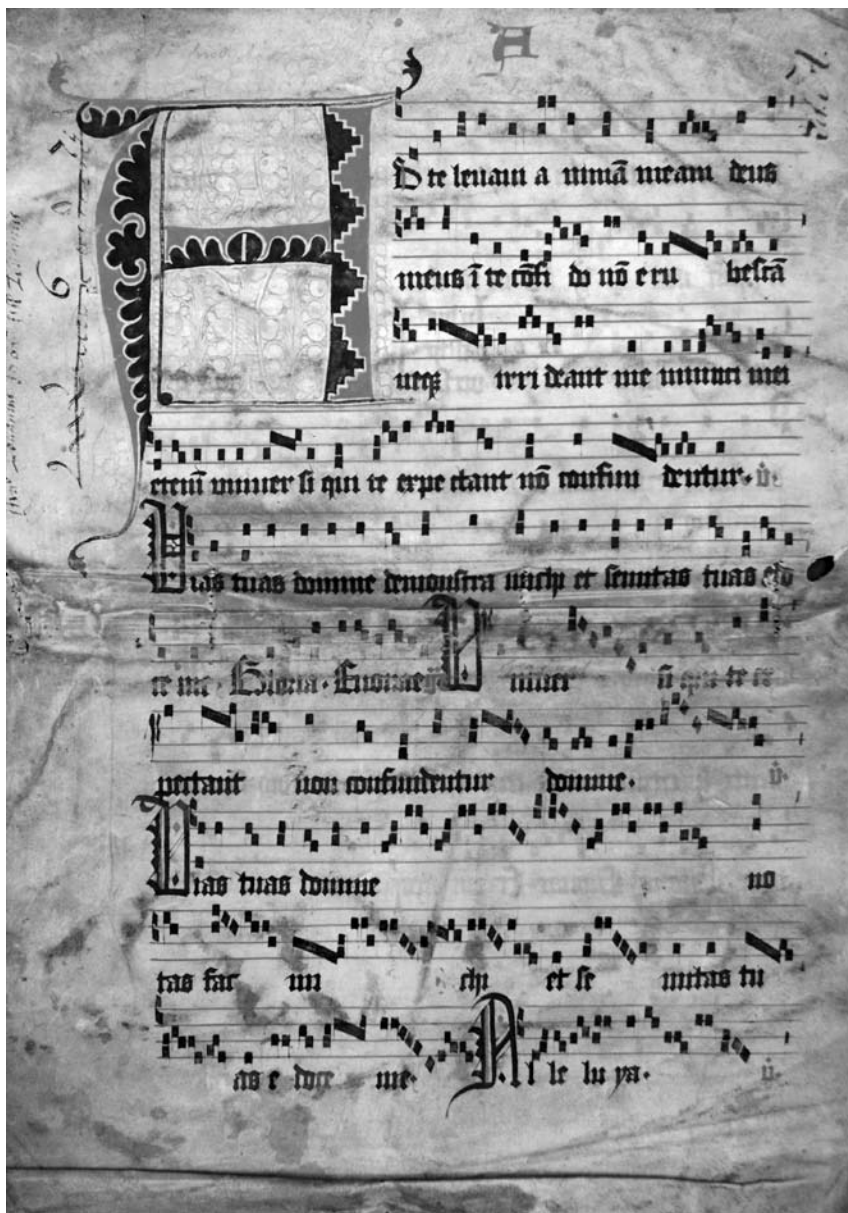 A
D te leuaui a nimā meam deus
meus ī te cōfi do nō eru bescā
neqꝫ irri deant me inimici mei
etenī uniuer si qui te expectant nō confun dentur. v̇.
Vias tuas domine demonstra michi et semitas tuas edo
ce me. Gloria. Euouae. Vniuer si qui te ex
pectant non confundentur domine. v̇.
Vias tuas domine no
tas fac mi chi et se mitas tu
as e doce me. Al le lu ya. v̇.